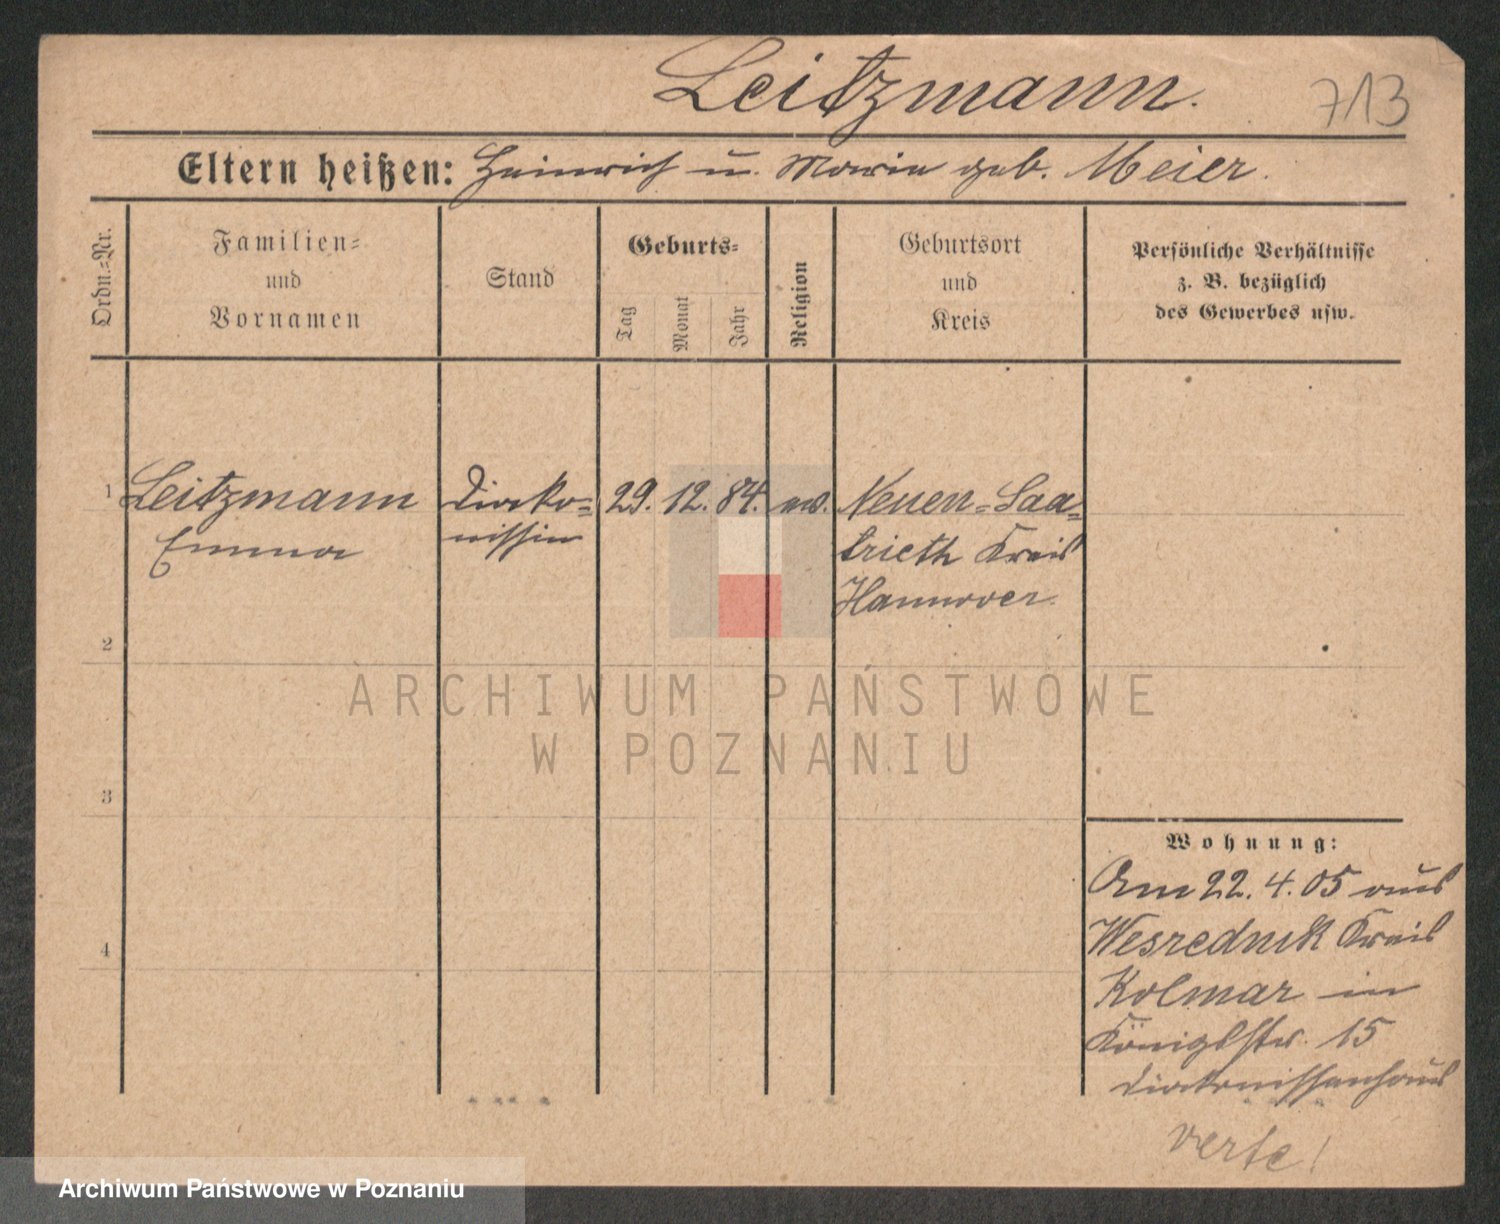 Leitzmann.
713
Eltern heißen: Heinrich u. Marie geb. Meier.
Ordn.=Nr.
Familien=
und
Vornamen
Stand
Geburts=
Tag
Monat
Jahr
Religion
Geburtsort
und
Kreis
Persönliche Verhältnisse
z. B. bezüglich
des Gewerbes usw.
1 Leitzmann Diako= 29. 12. 84. ev. Neuen=Saa=
Emma nissin trieth Kreis
Hannover
2
ARCHIWUM PAŃSTWOWE
W POZNANIU
3
Wohnung:
Am 22. 4. 05 aus
Wesrednik Kreis
4
Kolmar in
Königsstr. 15
Diakonissenhaus
verte!
Archiwum Państwowe w Poznaniu